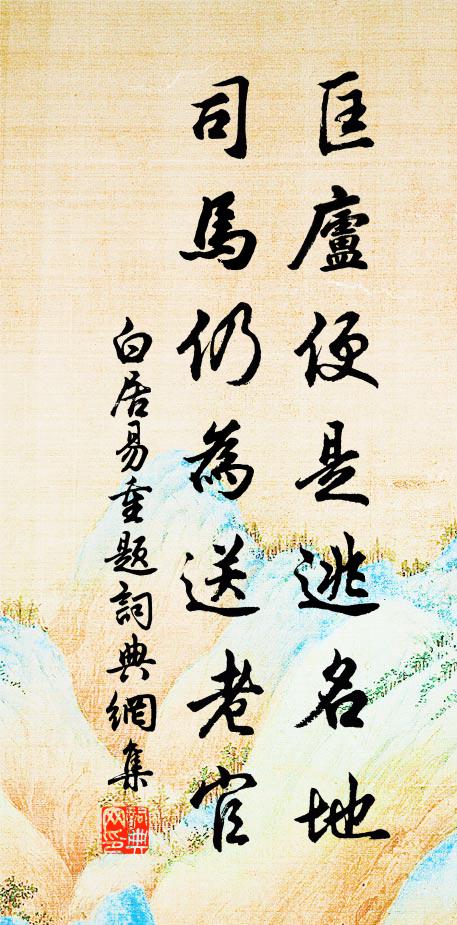 匡廬便是逃名地
司馬仍為送老官
白居易重題詞典網集
詞典網印